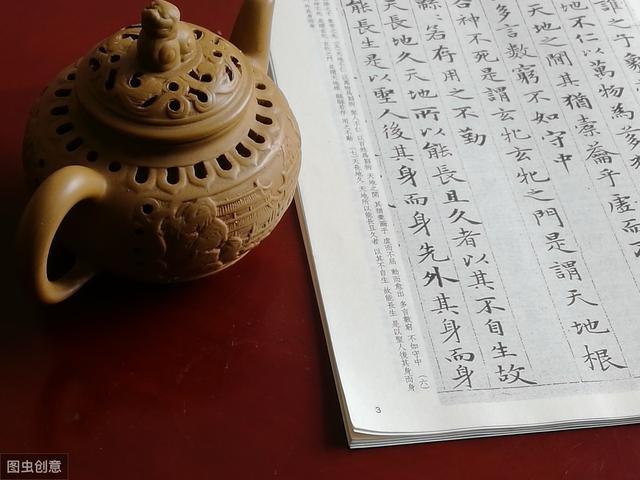 誰之子象
地不仁以萬物為芻
天地之間其猶橐籥乎虛而
多言數窮不如守中
谷神不死是謂玄牝玄牝之門是謂天地根
緜若存用之不勤
天長地久天地所以能長且久者以其不自生故
能長生是以聖人後其身而身先外其身而身
以萬物為芻狗 聖人不仁 以百姓為芻狗 天地之間 其猶橐籥乎 虛而不屈 動而愈出 多言數窮 不如守中 (六)
(七) 天長地久 天地所以能長且久者 以其不自生 故能長生 是以聖人後其身而身
3
图虫创意